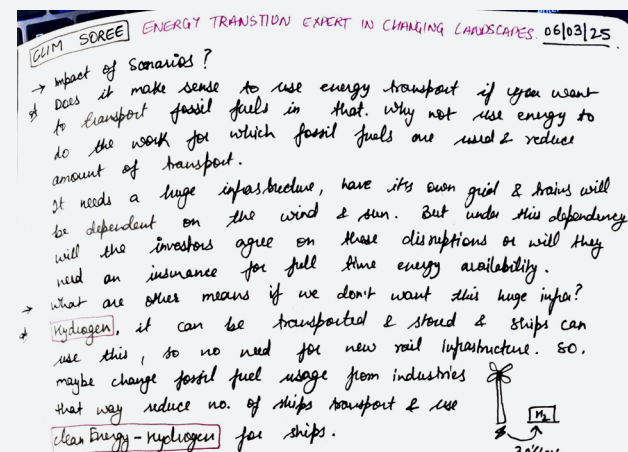 GLIM SOREE ENERGY TRANSTION EXPERT IN CHANGING LANDSCAPES. 06/03/25
→ Impact of Scenarios?
* Does it make sense to use energy transport if you want
to transport fossil fuels in that. Why not use energy to
do the work for which fossil fuels are used & reduce
amount of transport.
It needs a huge infrastructure, have its own grid & trains will
be dependent on the wind & sun. But under this dependency
will the investors agree on these disruptions or will they
need an insurance for full time energy availability.
→ What are other means if we don't want this huge infra?
* Hydrogen, it can be transported & stored & ships can
use this, so no need for new rail infrastructure. So,
maybe change fossil fuel usage from industries
that way reduce no. of ships transport & use
clean Energy - Hydrogen for ships.
H2